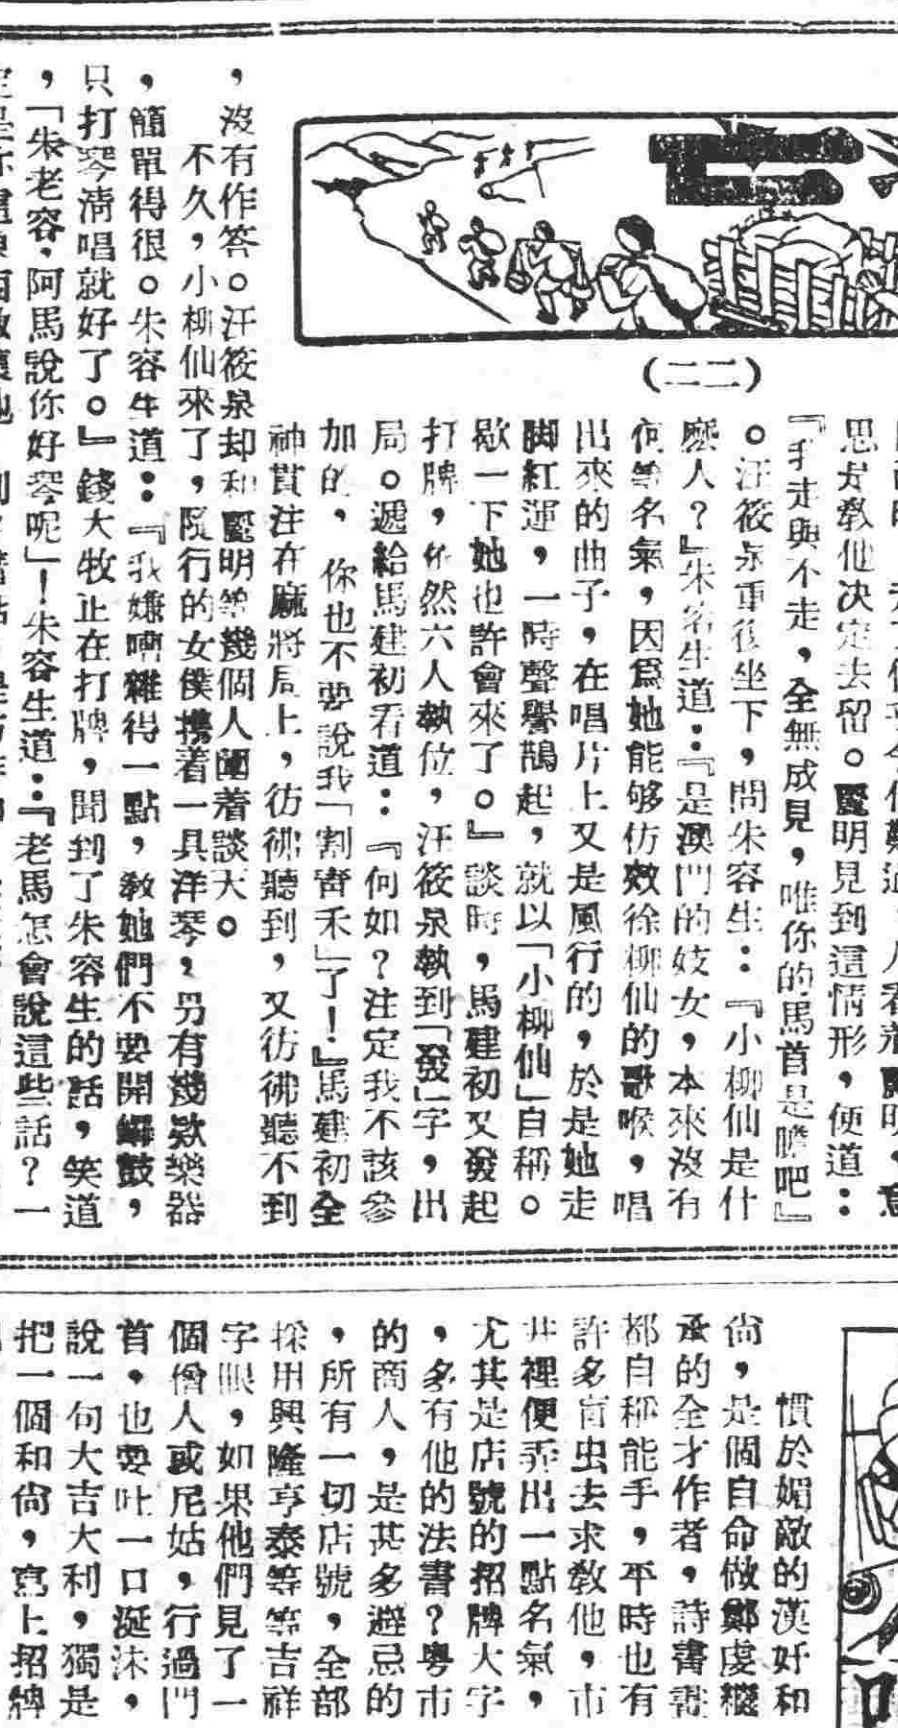 (二二)
思是敎他决定去留。麗明見到這情形，便道：
『我走與不走，全無成見，唯你的馬首是瞻吧』
。汪筱泉重復坐下，問朱容生：『小柳仙是什
麼人？』朱容生道：『是澳門的妓女，本來沒有
何等名氣，因爲她能够仿效徐柳仙的歌喉，唱
出來的曲子，在唱片上又是風行的，於是她走
脚紅運，一時聲譽鵲起，就以「小柳仙」自稱。
歇一下她也許會來了。』談時，馬建初又發起
打牌，依然六人執位，汪筱泉執到「發」字，出
局。遞給馬建初看道：『何如？注定我不該參
加的，你也不要說我「割靑禾」了！』馬建初全
神貫注在麻將局上，彷彿聽到，又彷彿聽不到
，沒有作答。汪筱泉却和麗明等幾個人圍着談天。
不久，小柳仙來了，隨行的女僕携着一具洋琴，另有幾欵樂器
，簡單得很。朱容生道：『我嫌嘈雜得一點，敎她們不要開鑼鼓，
只打琴淸唱就好了。』錢大牧正在打牌，聞到了朱容生的話，笑道
，「朱老容，阿馬說你好琴呢」！朱容生道：『老馬怎會說這些話？一
慣於媚敵的漢奸和
尙，是個自命做鄭虔糉
承的全才作者，詩書畫
都自稱能手，平時也有
許多盲虫去求敎他，市
井裡便弄出一點名氣，
尤其是店號的招牌大字
，多有他的法書？粤市
的商人，是甚多避忌的
，所有一切店號，全部
採用興隆亨泰等等吉祥
字眼，如果他們見了一
個僧人或尼姑，行過門
首，也要吐一口涎沫，
說一句大吉大利，獨是
把一個和尙，寫上招牌